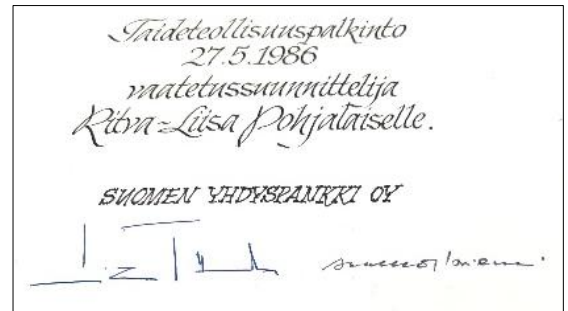 Taideteollisuuspalkinto
27.5.1986
vaatetussuunnittelija
Ritva-Liisa Pohjalaiselle.
SUOMEN YHDYSPANKKI OY